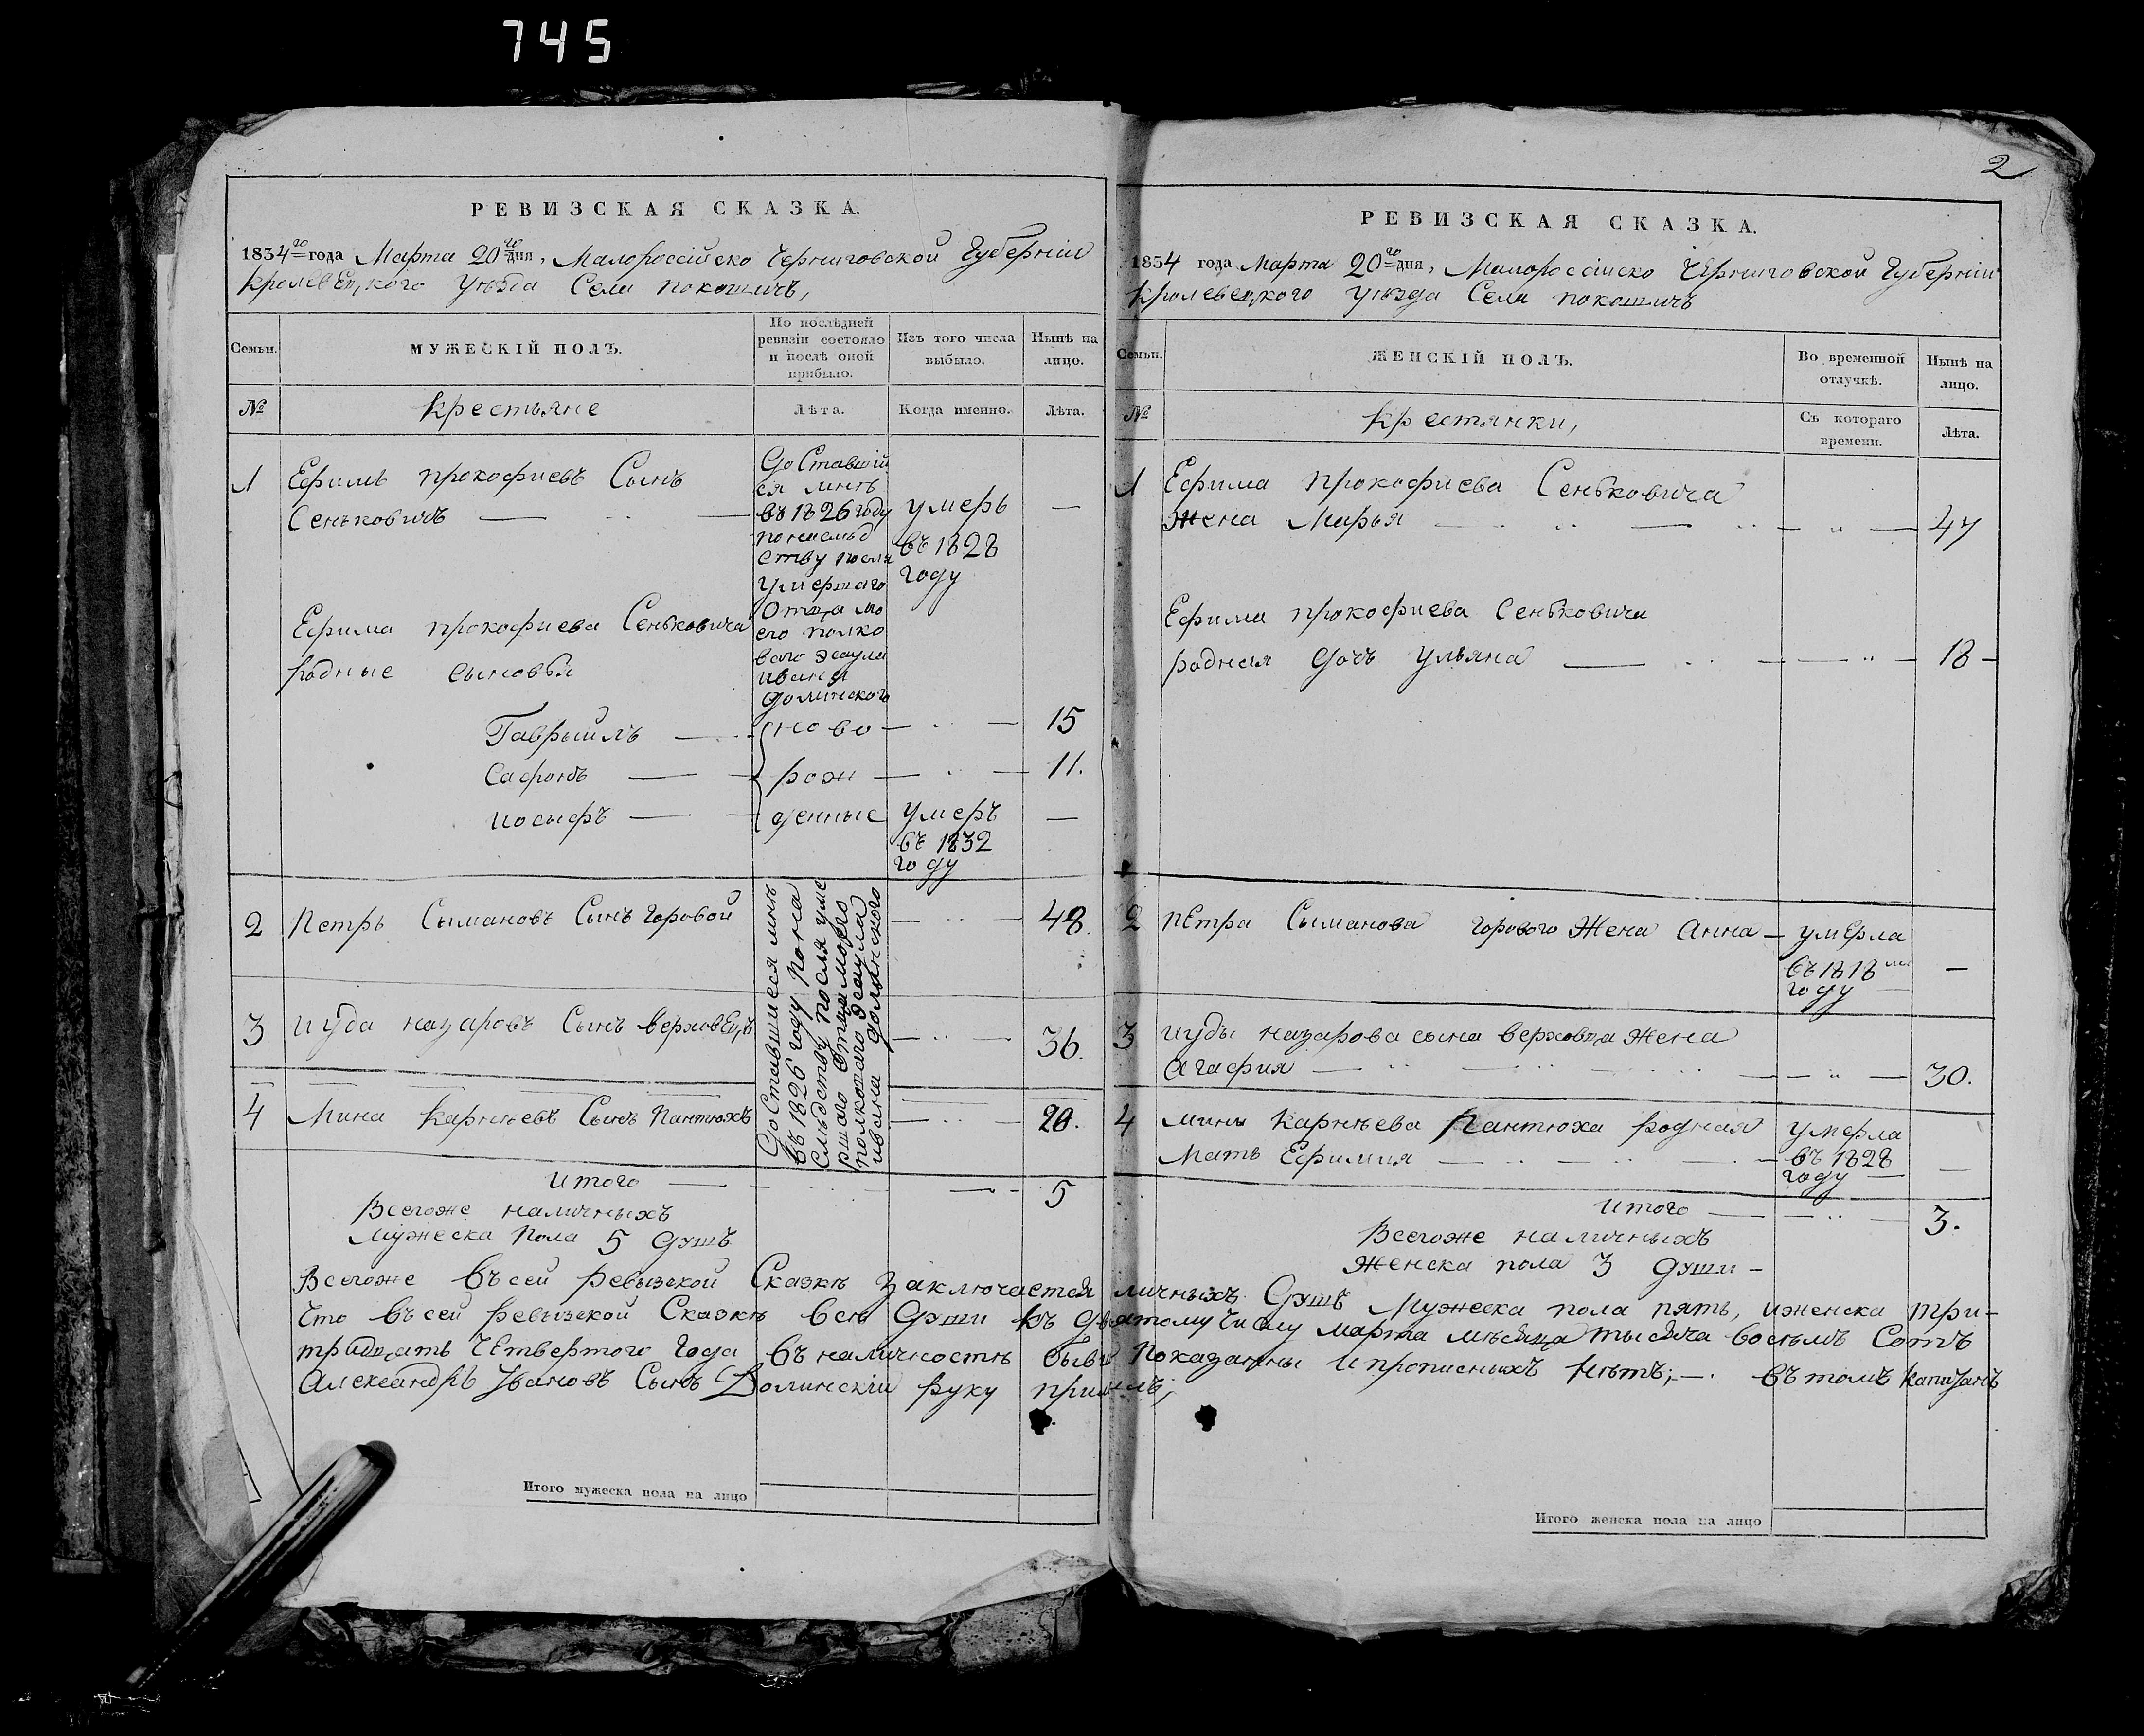 745
РЕВИЗСКАЯ СКАЗКА.
1834го года Марта 20го дня, Малороссійско Черниговской Губерніи
Кролевецкого Уезда Села Покошичъ,
Семьи.
МУЖЕСКІЙ ПОЛЪ.
По послѣдней ревизіи состояло и послѣ оной прибыло.
Изъ того числа выбыло.
Нынѣ на лицо.
№
Крестьяне
Лѣта.
Когда именно.
Лѣта.
1 Ефимъ Прокофиевъ Сынъ
Сеньковичъ
доставшій
ся мнѣ
въ 1826 году
по наслѣд
ству посля
умершаго
Отца мо
его полко
вого эсаула
Ивана
Долинского
умеръ
въ 1828
году
—
Ефима Прокофиева Сеньковича
родные сыновья
Гаврыилъ — ново — 15
Сафонъ — рож — 11.
Иосыфъ — денные умеръ —
въ 1832
году
2 Петръ Сымановъ Сынъ Горовой 48.
3 Иуда Назаровъ Сынъ Верховецъ 36.
4 Мина Карнѣевъ Сынъ Пантюхъ 20.
Доставшиеся мнѣ
въ 1826 году по на
слѣдству посля уме
ршаго Отца моего
полкового эсаула
Ивана Долинского
Итого — 5
Всегоже наличныхъ
мужеска пола 5 душъ
2
РЕВИЗСКАЯ СКАЗКА.
1834 года Марта 20го дня, Малороссійско Черниговской Губерніи
Кролевецкого Уезда Села Покошичъ
Семьи.
ЖЕНСКІЙ ПОЛЪ.
Во временной отлучкѣ.
Нынѣ на лицо.
№
Крестянки,
Съ котораго времени.
Лѣта.
1 Ефима Прокофиева Сеньковича
Жена Марья 47
Ефима Прокофиева Сеньковича
родная дочъ Ульяна 18
2 Петра Сыманова Горового Жена Анна — умерла
въ 1818м —
году
3 Иуды Назарова сына Верховца Жена
Агафия 30.
4 Мины Карнѣева Пантюха родная умерла
Мать Ефимия въ 1828 —
году
Итого — 3.
Всегоже наличныхъ
Женска пола 3 души —
Всегоже въ сей ревызской Сказкѣ заключается личныхъ Душъ Мужеска пола пять, иженска три —
Что въ сей ревызской Сказкѣ всѣ Души къ двятому Числу марта мѣсяца тысяча восемъ Сотъ
тридцать Четвертого Года въ наличностѣ бывш показанны и прописныхъ нѣтъ; —. въ томъ Капитанъ
Александръ Ивановъ Сынъ Долинскій руку прилож;
Итого мужеска пола на лицо
Итого женска пола на лицо